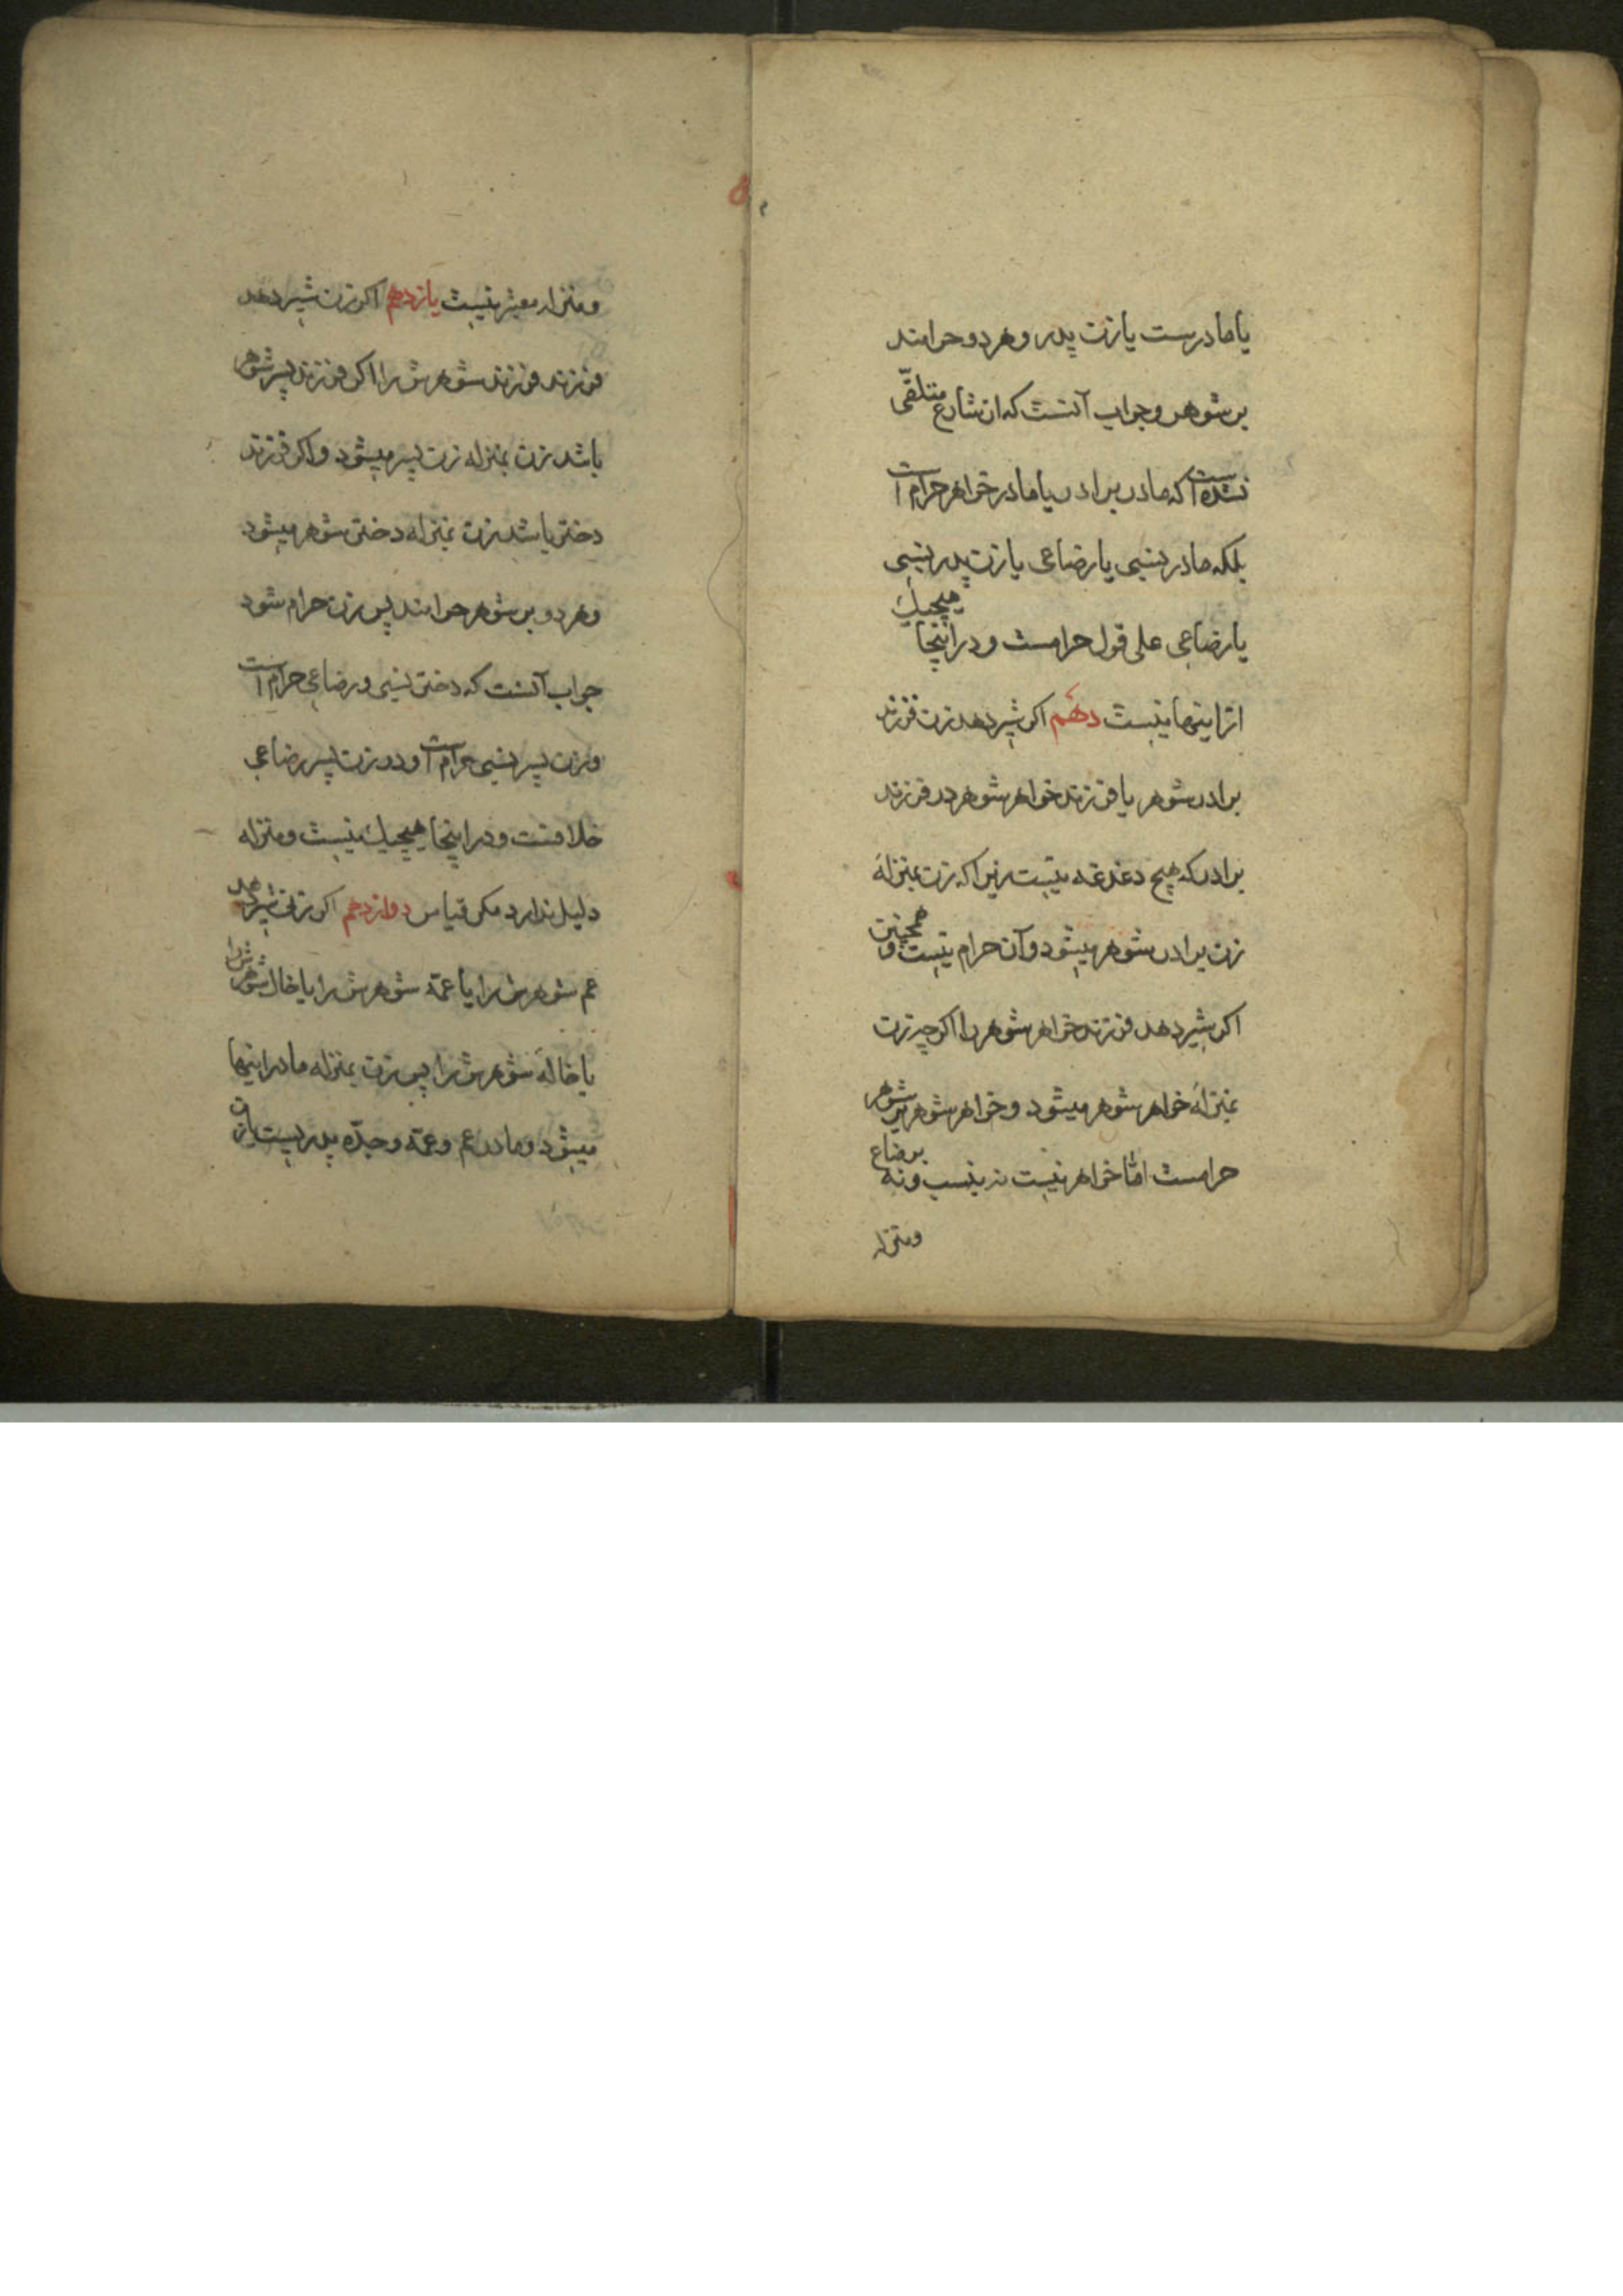 یا مادرست یا زن پدر و هر دو حرامند
بر شوهر و جواب آنست که از شارع متلقّی
نشده است که مادر برادر یا مادر خواهر حرام است
بلکه مادر نسبی یا رضاعی یا زن پدر نسبی
یا رضاعی علی قول حرامست و در اینجا هیچیک
از اینها نیست دهم اکر شیر دهد زن فرزند
برادر شوهر یا فرزند خواهر شوهر در فرزند
برادر که هیچ دغدغه نیست زیرا که زن بمنزلهٔ
زن برادر شوهر میشود و آن حرام نیست و همچنین
اکر شیر دهد فرزند خواهر شوهر را اکر چه زن
بمنزلهٔ خواهر شوهر میشود و خواهر شوهر بر شوهر
حرامست امّا خواهر نیست نه بنسب و نه برضاع
ومنزله
ومنزله معتبر نیست یازدهم اکر زن شیر دهد
فرزند فرزند شوهرش را اکر فرزند پسر شوهر
باشد زن بمنزله زن پسر میشود و اکر فرزند
دختر باشد زن بمنزله دختر شوهر میشود
و هر دو بر شوهر حرامند پس زن حرام شود
جواب آنست که دختر نسبی و رضاعی حرام است
و زن پسر نسبی حرام است و در زن پسر رضاعی
خلافست و در اینجا هیچیک نیست و منزله
دلیل ندارد مکر قیاس دوازدهم اکر زن شیر دهد
عم شوهرش را یا عمّه شوهرش را یا خال شوهرش را
یا خالهٔ شوهرش را پس زن بمنزله مادر اینها
میشود و مادر عم و عمّه و جدّه پدریست یا زن